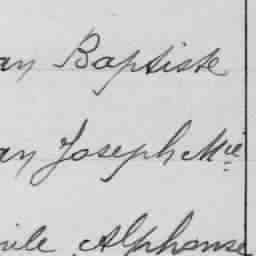 an Baptiste
an Joseph Mie
ile Alphonse